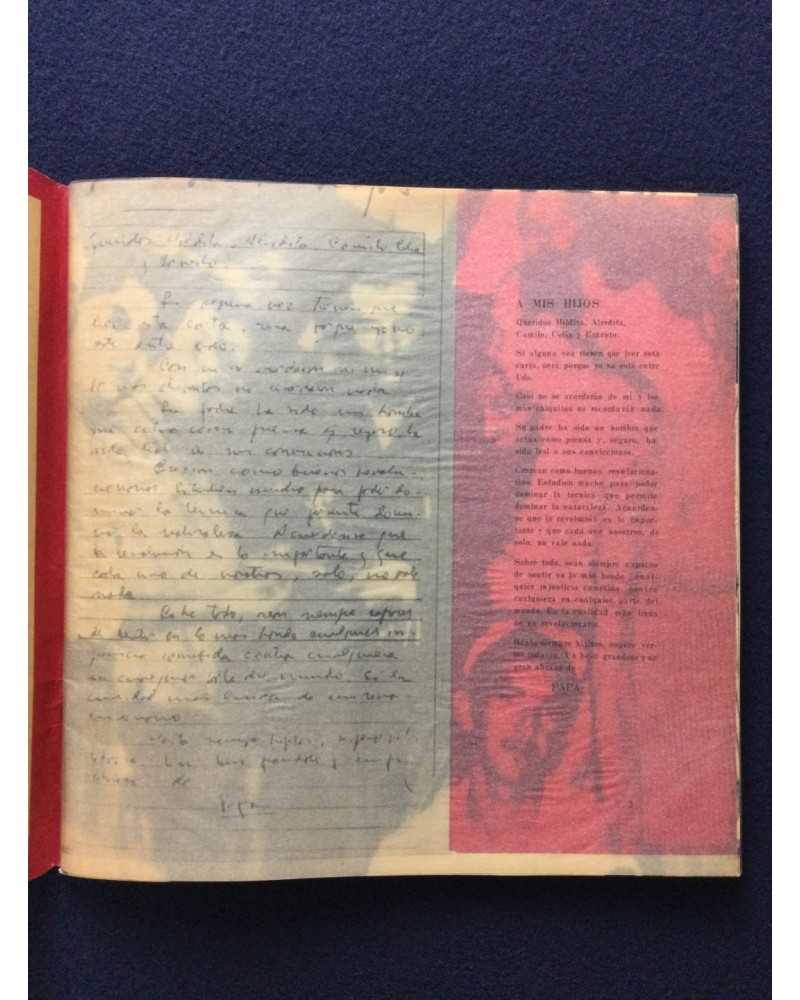 Queridos Hildita, Aleidita, Camilo, Celia
y Ernesto:
Si alguna vez tienen que
leer esta carta, será porque yo no
esté entre Uds.
Casi no se acordarán de mi y
los más chiquitos no recordarán nada.
Su padre ha sido un hombre
que actúa como piensa y, seguro, ha
sido leal a sus convicciones.
Crezcan como buenos revolu-
cionarios. Estudien mucho para poder do-
minar la técnica que permite domi-
nar la naturaleza. Acuérdense que
la revolución es lo importante y que
cada uno de nosotros, solo, no vale
nada.
Sobre todo, sean siempre capaces
de sentir en lo más hondo cualquier in-
justicia cometida contra cualquiera
en cualquier parte del mundo. Es la
cualidad más linda de un revo-
lucionario.
Hasta siempre hijitos, espero
Un beso grandote y un gran
de
Papá
A MIS HIJOS
Queridos Hildita, Aleidita,
Camilo, Celia y Ernesto:
Si alguna vez tienen que leer esta
carta, será porque yo no esté entre
Uds.
Casi no se acordarán de mí y los
más chiquitos no recordarán nada.
Su padre ha sido un hombre que
actúa como piensa y, seguro, ha
sido leal a sus convicciones.
Crezcan como buenos revoluciona-
rios. Estudien mucho para poder
dominar la técnica que permite
dominar la naturaleza. Acuérden-
se que la revolución es lo impor-
tante y que cada uno nosotros, de
solo, no vale nada.
Sobre todo, sean siempre capaces
de sentir en lo más hondo cual-
quier injusticia cometida contra
cualquiera en cualquier parte del
mundo. Es la cualidad más linda
de un revolucionario.
Hasta siempre hijitos, espero ver-
los todavía. Un beso grandote y un
gran abrazo de
PAPA